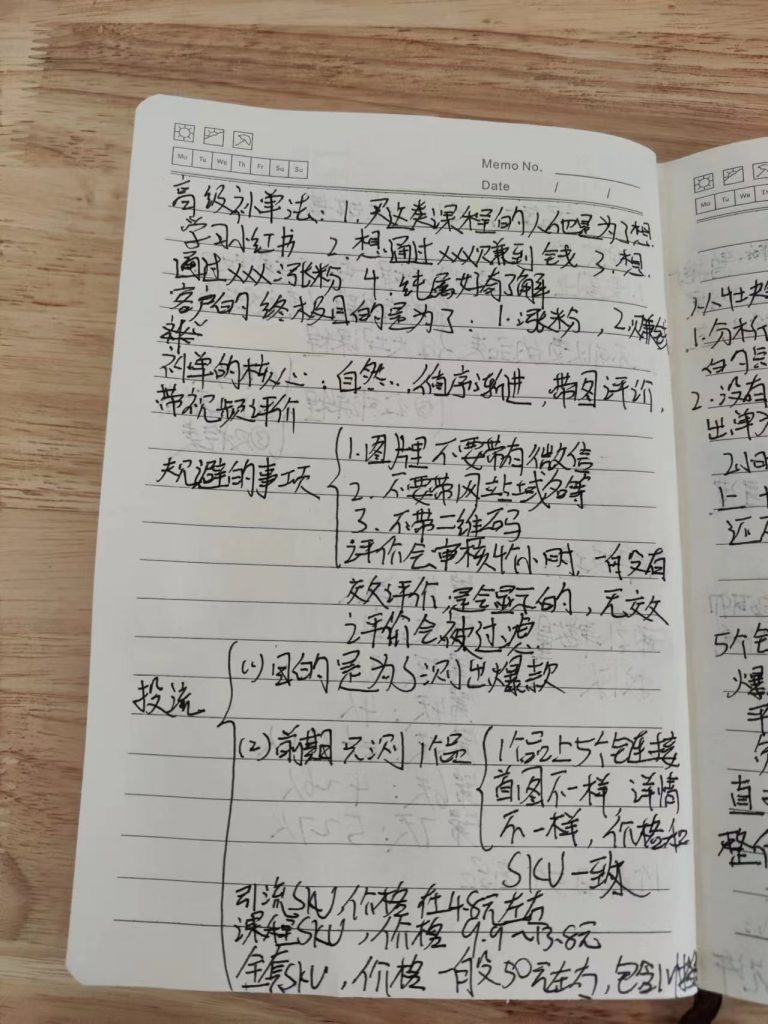 Mo Tu We Th Fr Sa Su
Memo No.
Date / /
高级补单法：1. 买这类课程的人他是为了想
学习小红书 2. 想通过xxx赚到钱 3. 想
通过xxx涨粉 4. 纯属好奇了解
客户的终极目的是为了：1. 涨粉，2. 赚钱
补单的核心：自然…，循序渐进，带图评价，
带视频评价
规避的事项
1. 图片里不要带有微信
2. 不要带网站域名等
3. 不带二维码
评价会审核4个小时，一般有
效评价，是会显示的，无效
评价会被过滤
投流
(1) 目的是为了测出爆款
(2) 前期只测1个品
1个品上5个链接
首图不一样 详情
不一样，价格和
SKU一致
引流SKU，价格在4.8元左右
课程SKU，价格 9.9~13.8元
全套SKU，价格一般50元左右，包含
Mo Tu We Th
1. 分析
2. 没有
出单
2小时
5个
爆
平
直
整个